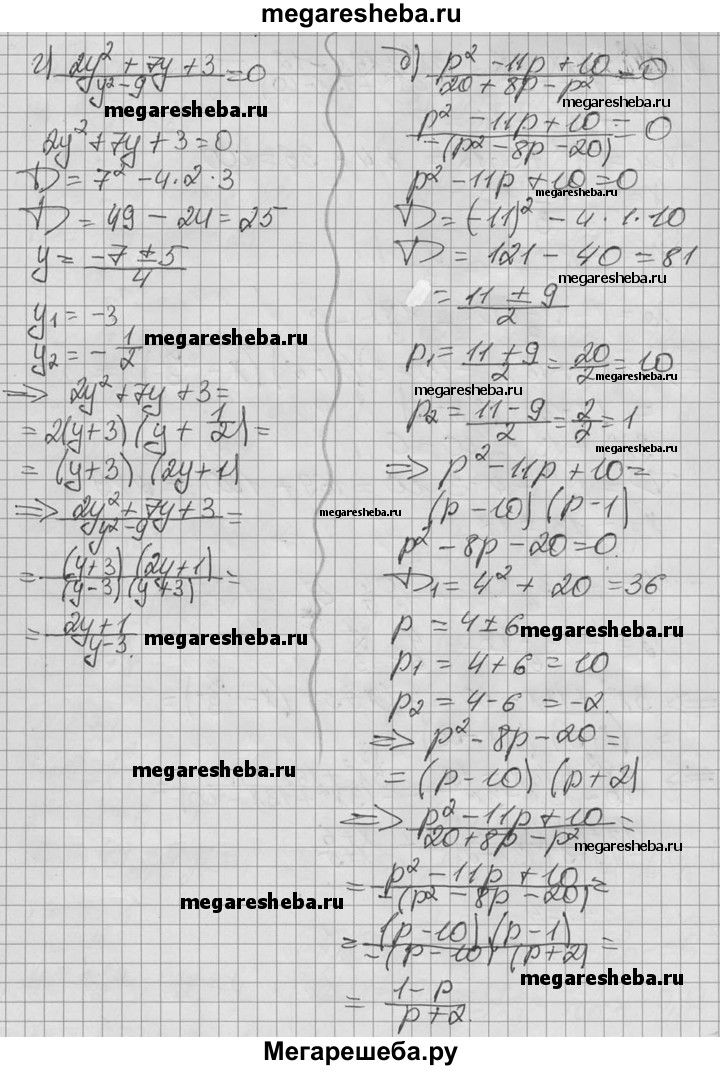 megaresheba.ru
г) (2y² + 7y + 3)/(y² - 9) = 0
megaresheba.ru
2y² + 7y + 3 = 0
D = 7² - 4·2·3
D = 49 - 24 = 25
y = (-7 ± 5)/4
y₁ = -3
megaresheba.ru
y₂ = - 1/2
=> 2y² + 7y + 3 =
= 2(y+3)(y + 1/2) =
= (y+3)(2y+1)
=> (2y² + 7y + 3)/(y² - 9) =
= (y+3)(2y+1)/(y-3)(y+3) =
= (2y+1)/(y-3).
megaresheba.ru
megaresheba.ru
megaresheba.ru
megaresheba.ru
д) (p² - 11p + 10)/(20 + 8p - p²) = 0
megaresheba.ru
(p² - 11p + 10)/-(p² - 8p - 20) = 0
p² - 11p + 10 = 0
megaresheba.ru
D = (-11)² - 4·1·10
D = 121 - 40 = 81
megaresheba.ru
= (11 ± 9)/2
p₁ = (11 + 9)/2 = 20/2 = 10
megaresheba.ru
megaresheba.ru
p₂ = (11 - 9)/2 = 2/2 = 1
megaresheba.ru
=> p² - 11p + 10 =
(p - 10)(p - 1)
p² - 8p - 20 = 0.
D₁ = 4² + 20 = 36
p = 4 ± 6
megaresheba.ru
p₁ = 4 + 6 = 10
p₂ = 4 - 6 = -2.
=> p² - 8p - 20 =
= (p - 10)(p + 2)
=> (p² - 11p + 10)/(20 + 8p - p²) =
megaresheba.ru
= (p² - 11p + 10)/-(p² - 8p - 20) =
= (p - 10)(p - 1)/-(p - 10)(p + 2) =
megaresheba.ru
= (1 - p)/(p + 2).
Мегарешеба.ру